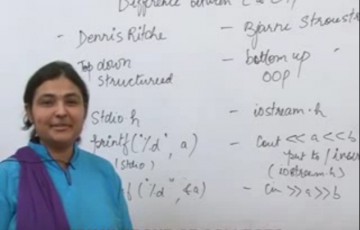 Difference between C & C++
- Dennis Ritche - Bjarne Stroust
Top down - bottom up
structured OOP
Stdio.h - iostream.h
printf("%d", a) - Cout << a << b
(stdio) put to / inser
(iostream.h)
f ("%d", &a) - Cin >> a >> b